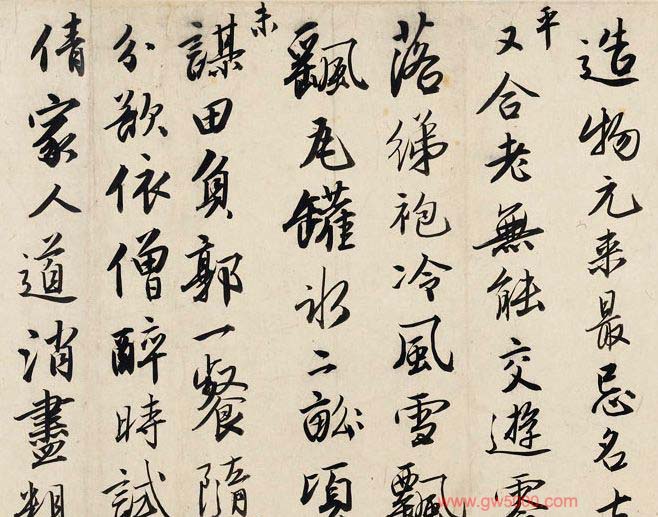 造物元来最忌名
平
又合老無能交遊零
落綈袍冷風雪飄
飄瓦罐冰二畝頃
未
謀田負郭一餐隋
分欲依僧醉時試
倩家人道消盡粗
www.gw5000.com